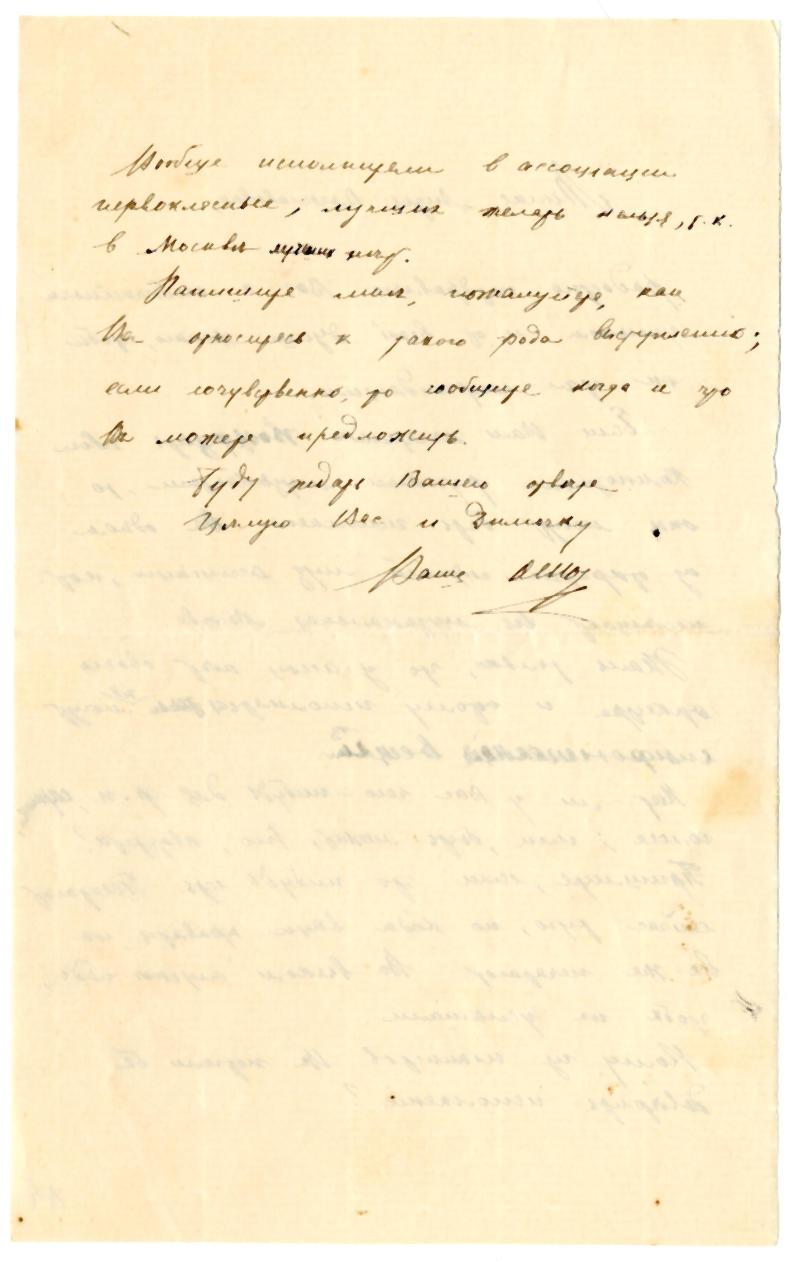 Вообще исполнители в ассоциации
первокласные; лучших теперь нельзя, т. к.
в Москве лучших нет.
Напишите мне, пожалуйста, как
Вы относитесь к такого рода выступлению;
если сочувственно, то сообщите когда и что
Вы можете предложить.
Буду ждать Вашего ответа
Целую Вас и Димочку
Ваше